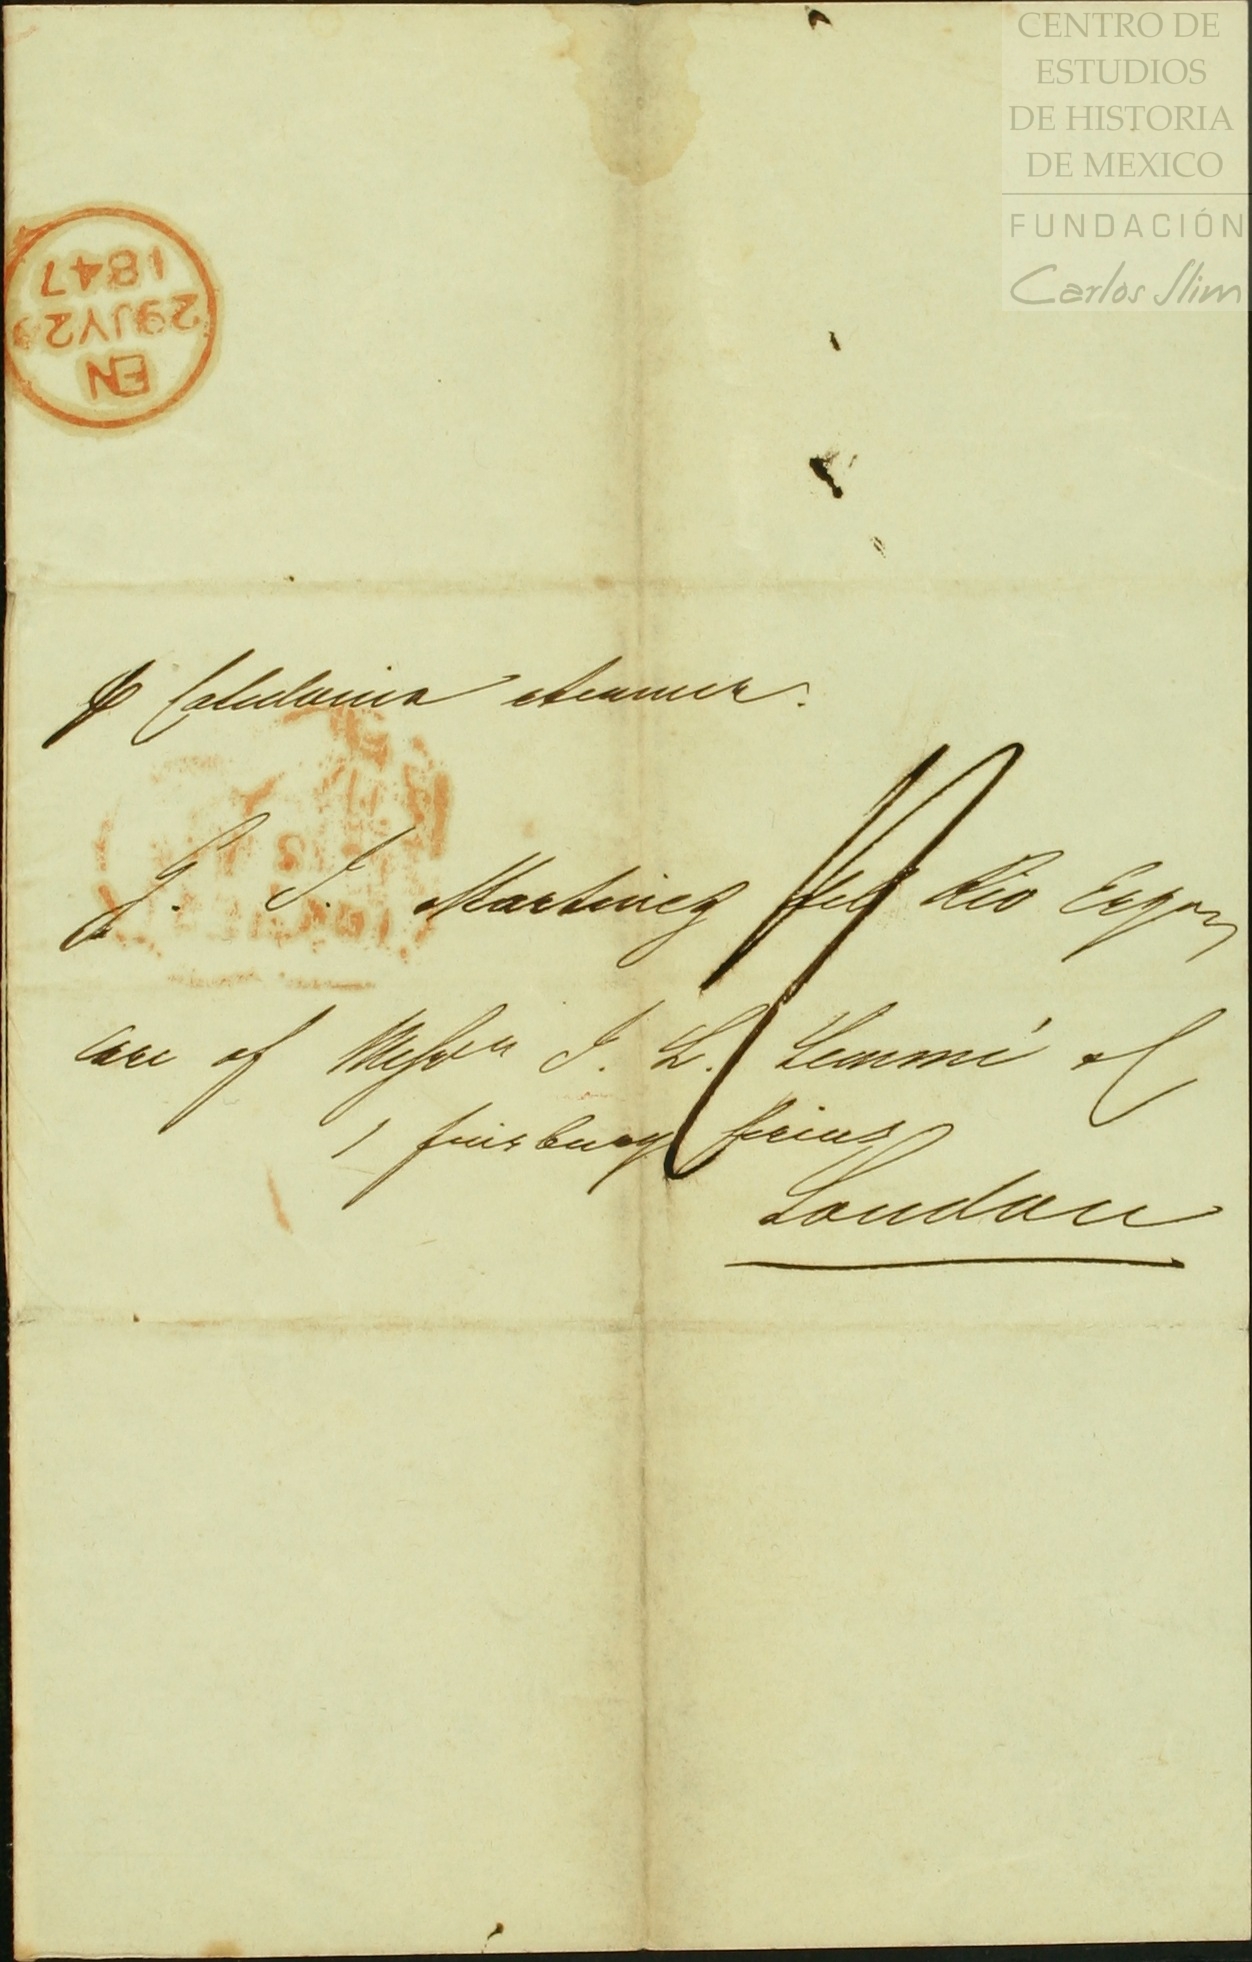 CENTRO DE
ESTUDIOS
DE HISTORIA
DE MEXICO
FUNDACIÓN
Carlos Slim
EN
29JY29
1847
℔ Caledonia steamer.
G. J. Martinez del Rio Esqre
care of Messrs J. L. Lemmé &C
1 finsbury
London